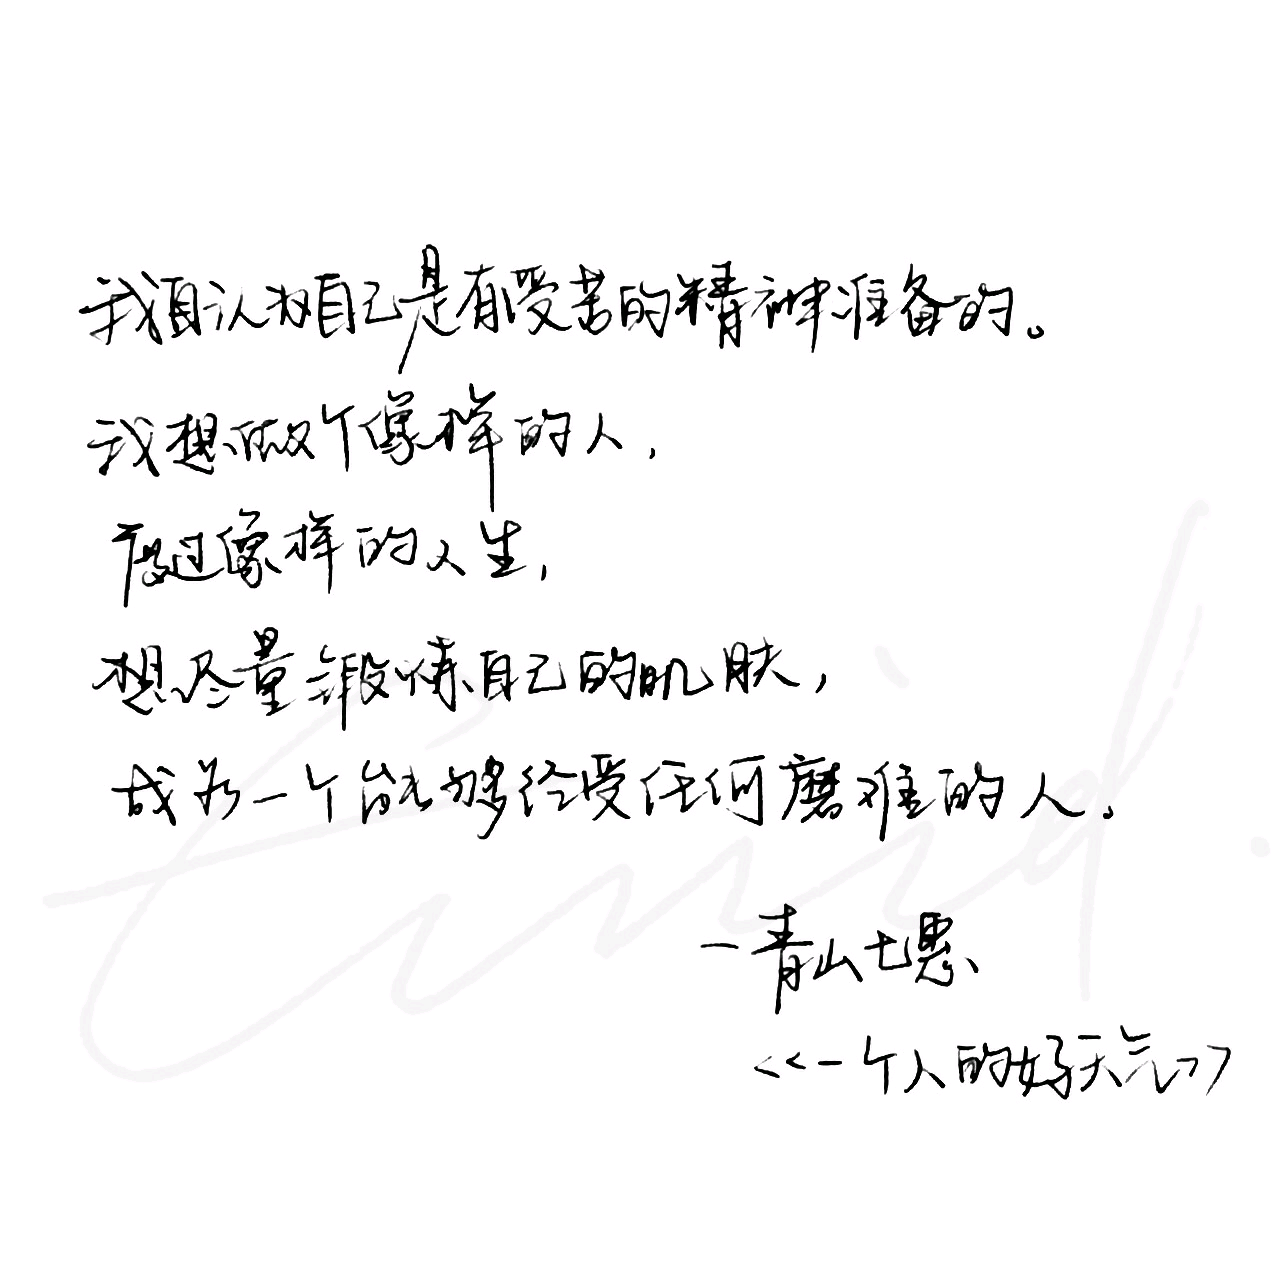 我自认为自己是有受苦的精神准备的。
我想做个像样的人，
度过像样的人生，
想尽量锻炼自己的肌肤，
成为一个能够经受任何磨难的人。
一青山七惠、
<<一个人的好天气>>